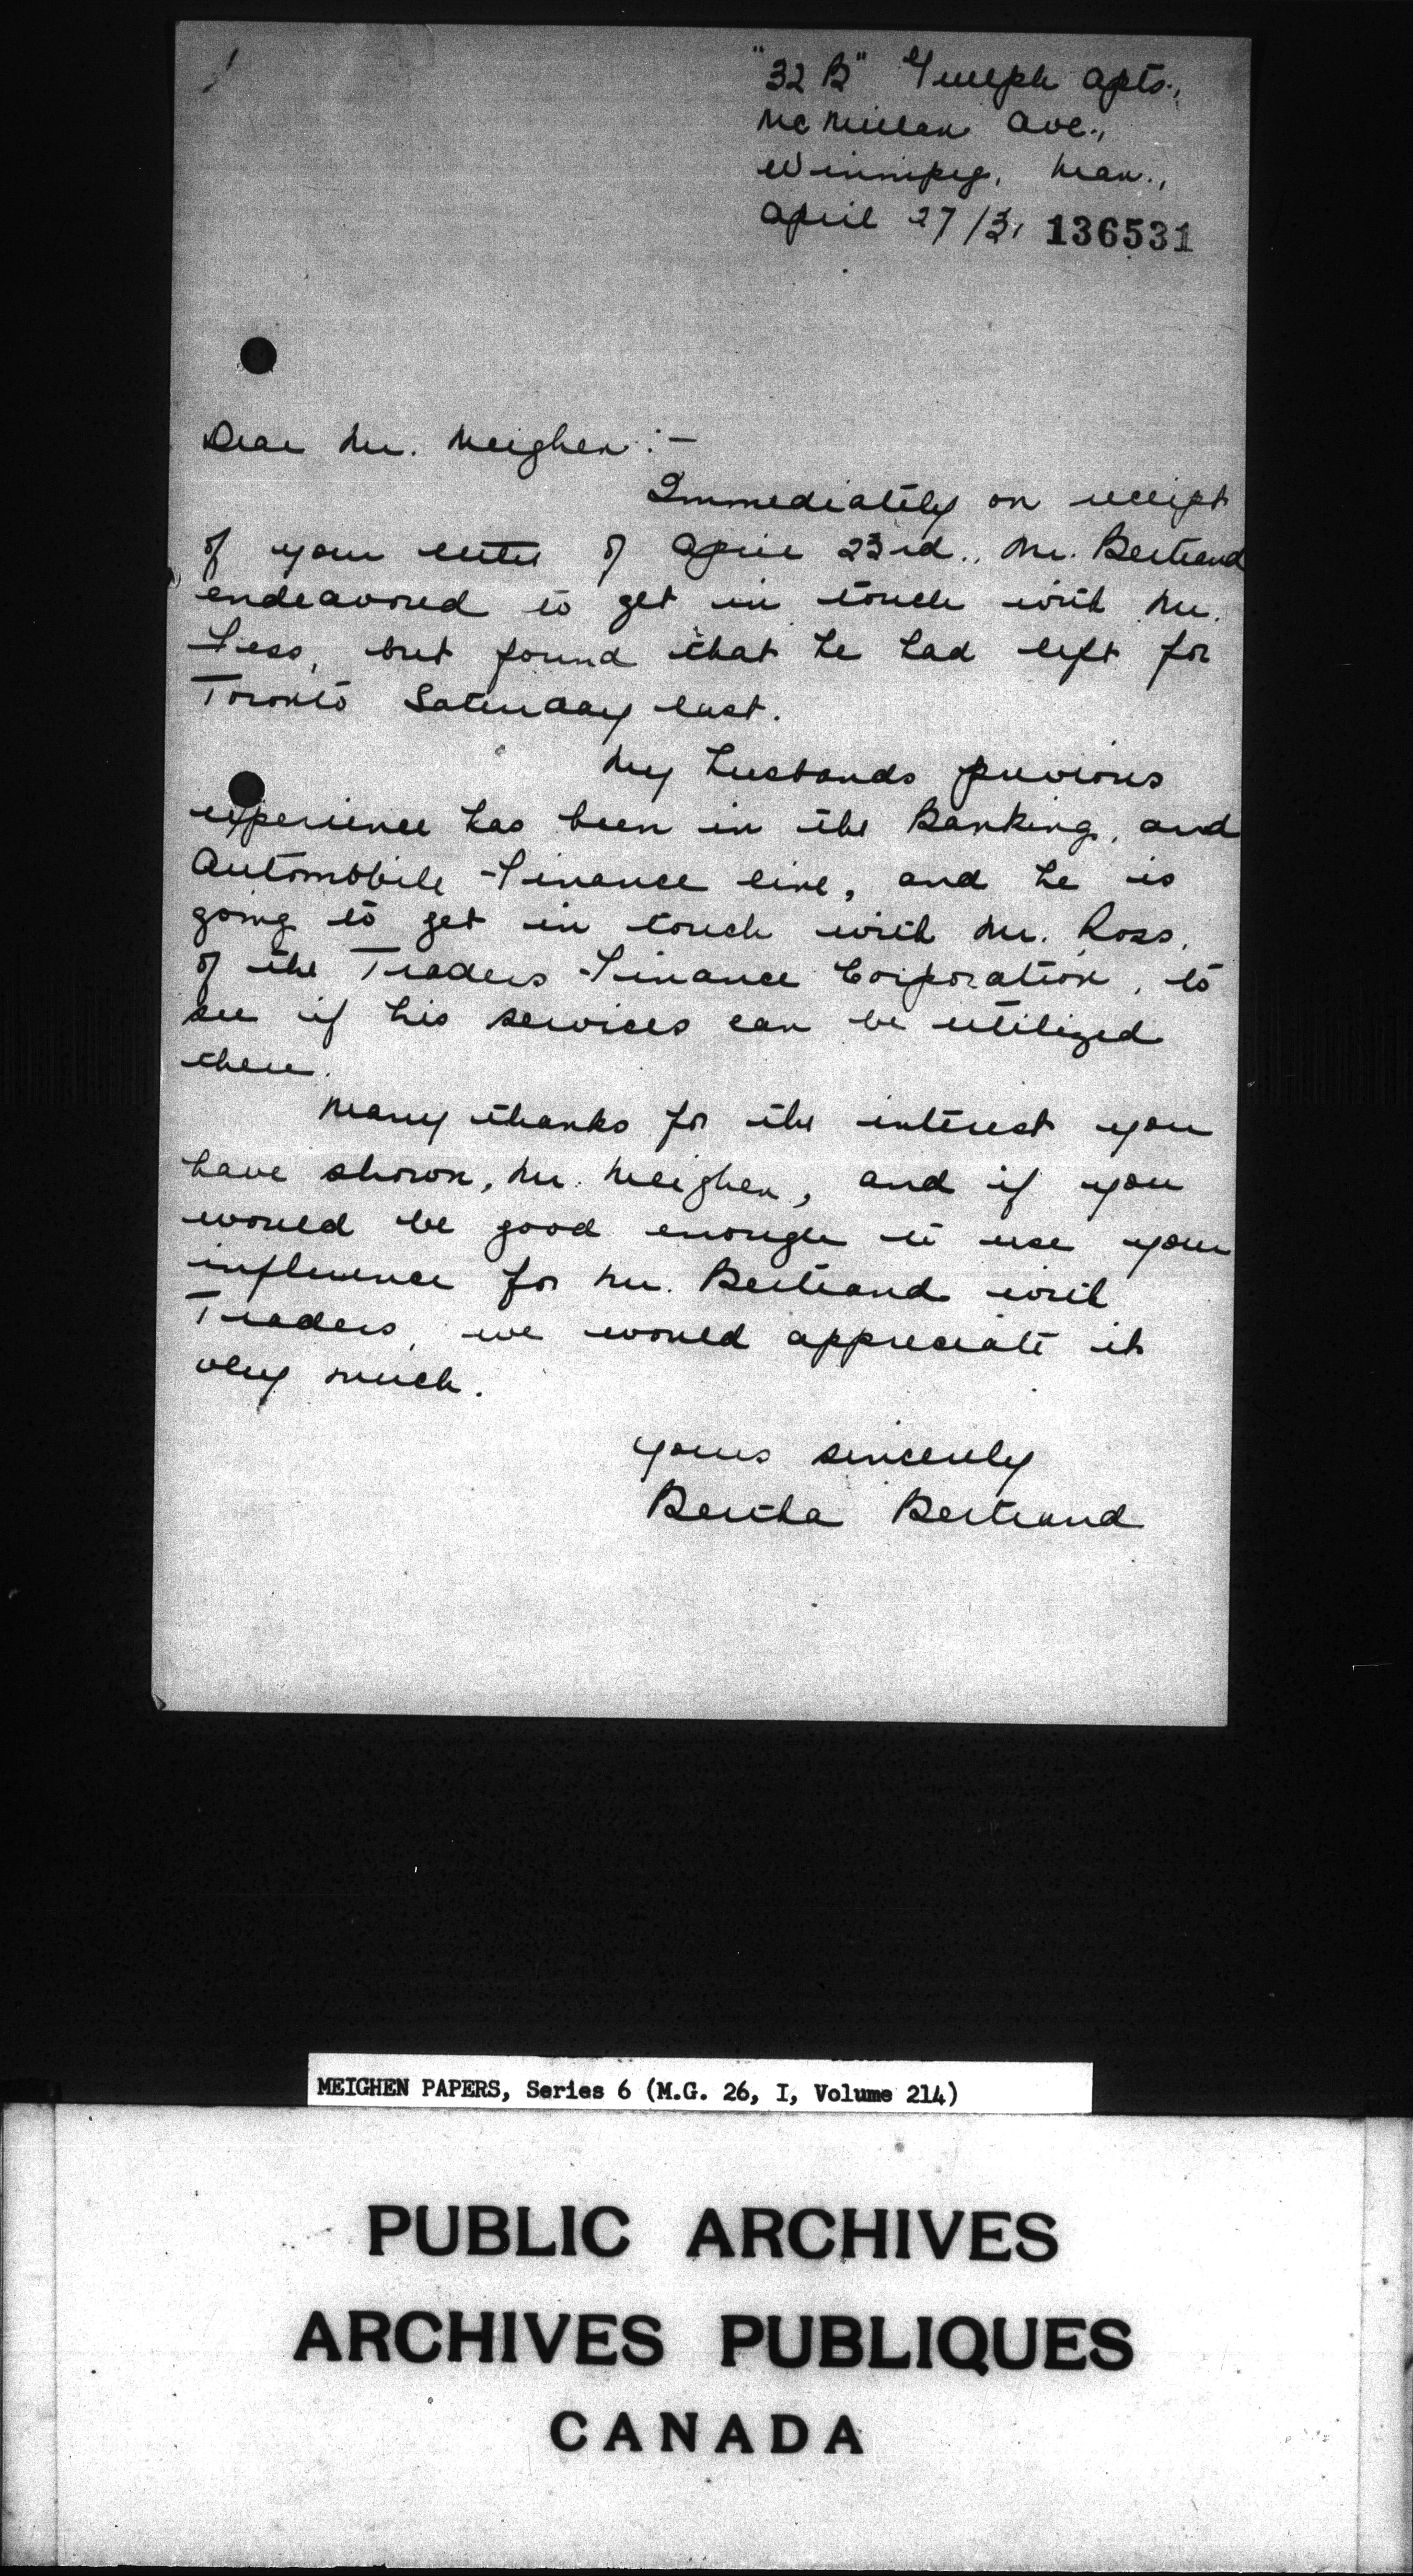 "32 B" Guelph Apts.,
McMillan Ave.,
Winnipeg, Man.,
April 27/31 136531
Dear Mr. Meighen:-
Immediately on receipt
of your letter of April 23rd., Mr. Bertrand
endeavored to get in touch with Mr.
but found that he had left for
Toronto Saturday last.
My husbands previous
experience has been in the Banking, and
Automobile Finance line, and he is
going to get in touch with Mr. Ross,
of the Traders Finance Corporation, to
see if his services can be utilized
there.
Many thanks for the interest you
have shown, Mr. Meighen, and if you
would be good enough to use your
influence for Mr. Bertrand with
Traders, we would appreciate it
very much.
Yours sincerely
Bertha Bertrand
MEIGHEN PAPERS, Series 6 (M.G. 26, I, Volume 214)
PUBLIC ARCHIVES
ARCHIVES PUBLIQUES
CANADA